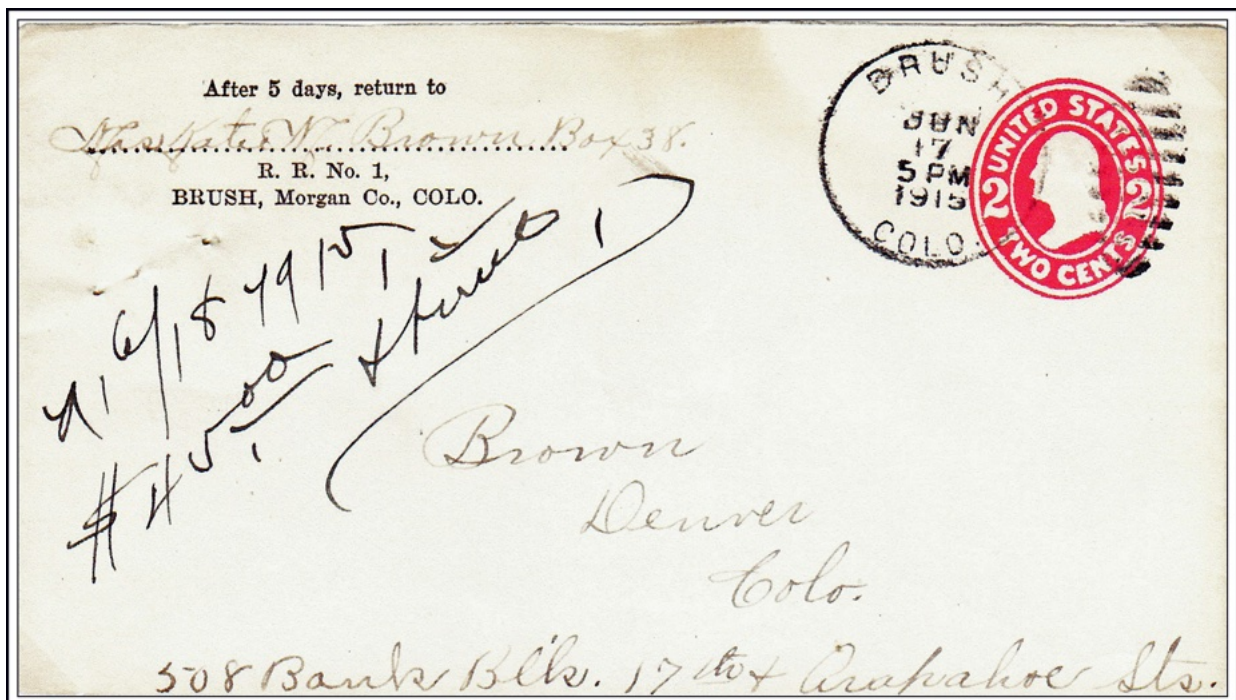 After 5 days, return to
Mrs Kate M. Brown. Box 38.
R. R. No. 1,
BRUSH, Morgan Co., COLO.
BRUSH
JUN
17
5 PM
1915
COLO.
UNITED STATES
2 2
TWO CENTS
6/18
$45.00
Brown
Denver
Colo.
508 Bank Blk. 17th & Arapahoe Sts.